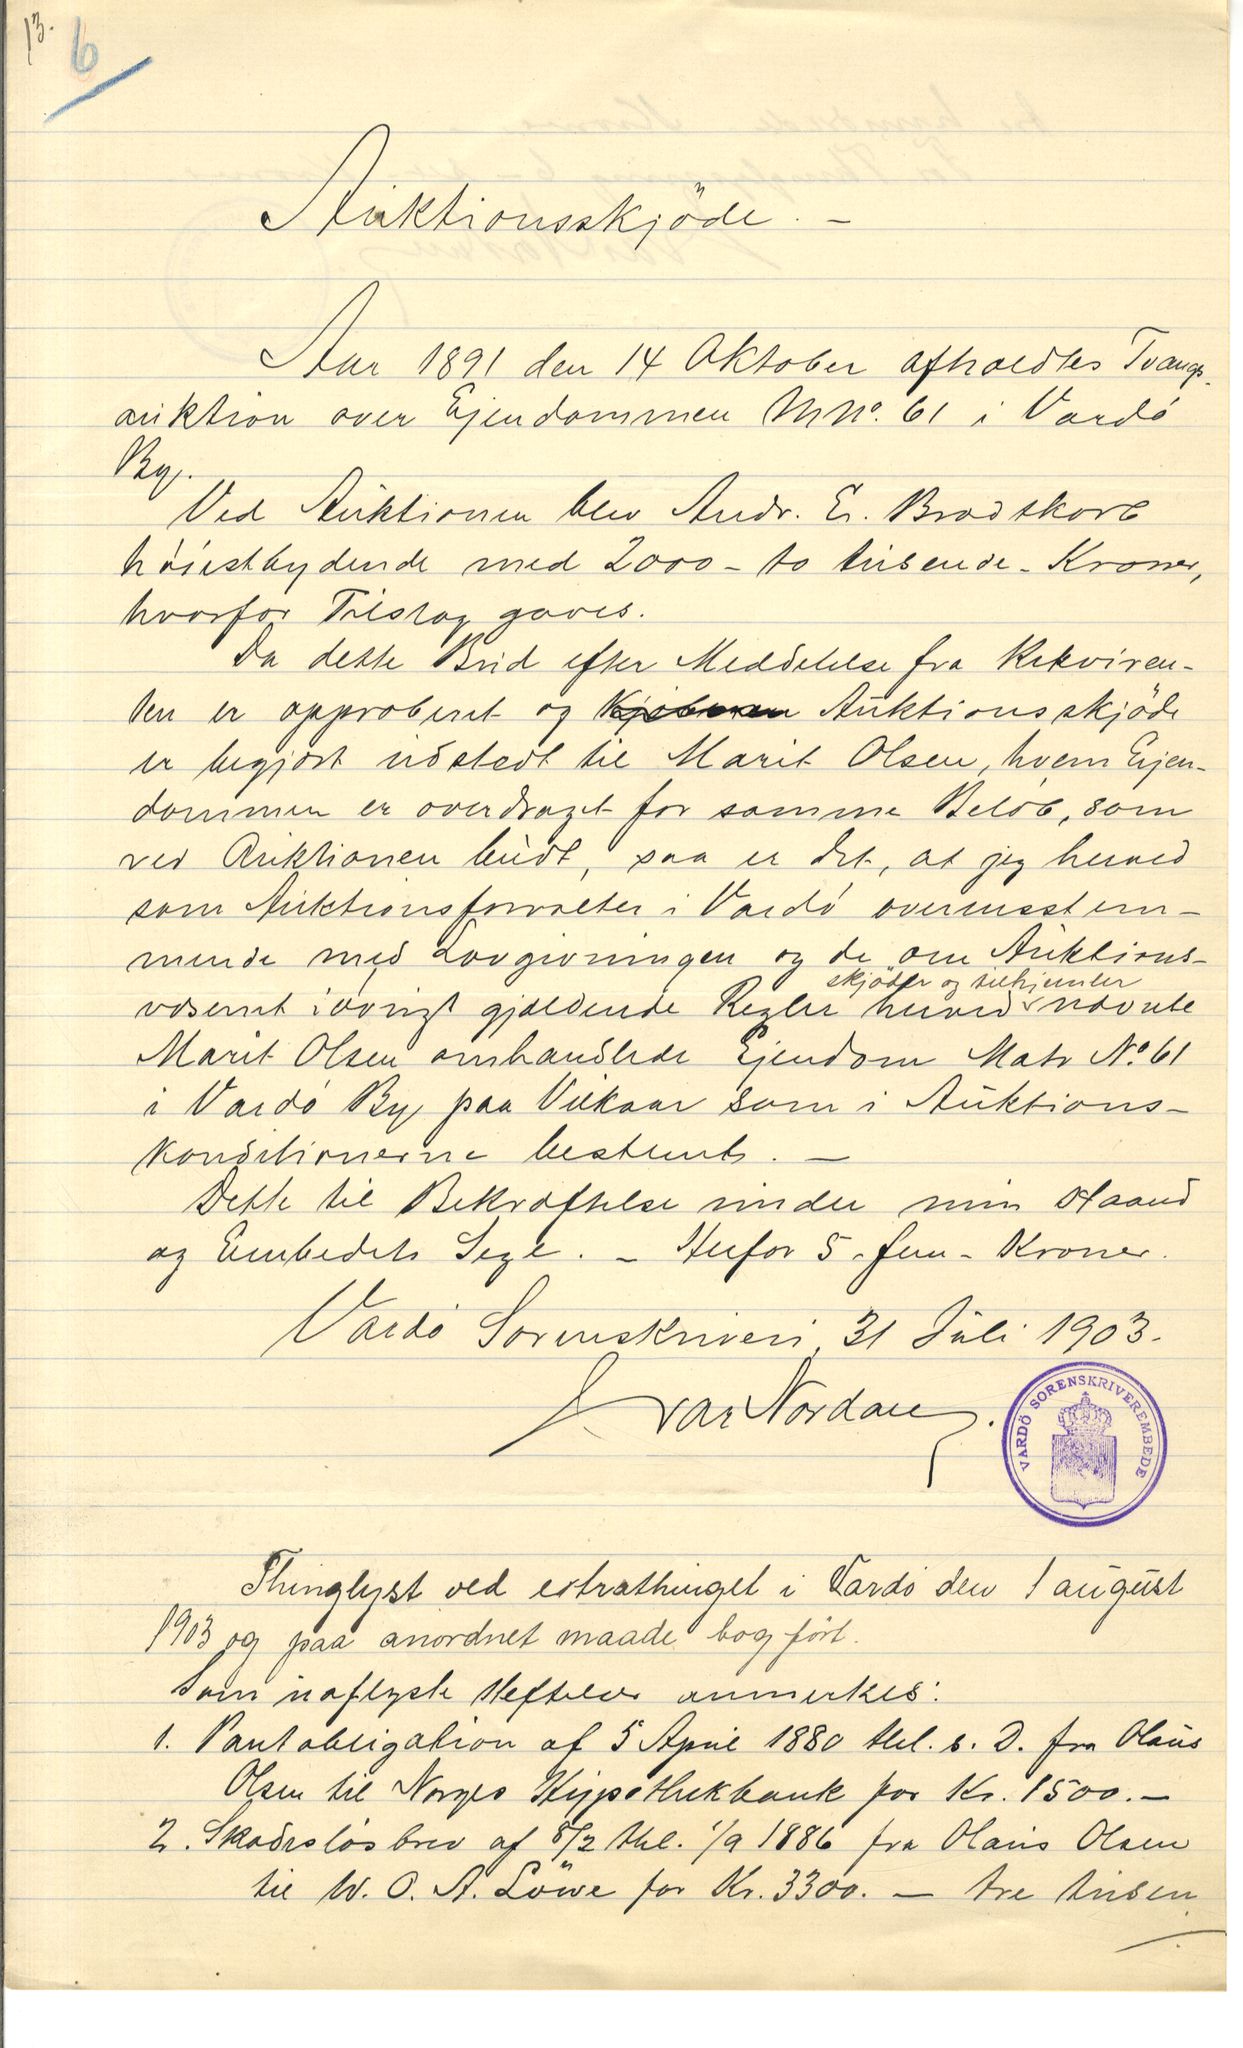 13.
6
Auktionsskjöde. —
Aar 1891 den 14 Oktober afholdtes Tvangs-
auktion over Ejendommen M.No. 61 i Vardö
By.
Ved Auktionen blev Andr. Er. Brodtkorb
höiestbydende med 2000 - to tusende - Kroner,
hvorfor Tilslag gaves.
Da dette Bud efter Meddelelse fra Rekviren-
ten er approberet og Kjøberen Auktionsskjöde
er begjært udstedt til Marit Olsen, hvem Ejen-
dommen er overdraget for samme Belöb, som
ved Auktionen budt, saa er det, at jeg herved
som Auktionsforvalter i Vardö overensstem-
mende med Lovgivningen og de om Auktions-
væsenet iövrigt gjældende Regler herved skjöder og tilhjemler nævnte
Marit Olsen omhandlede Ejendom Matr No. 61
i Vardö By paa Vilkaar som i Auktions-
konditionerne bestemt. —
Dette til Bekræftelse under min Haand
og Embedets Segl. — Herfor 5 - fem - Kroner.
Vardö Sorenskriveri, 31 Juli 1903.
Ivar Nordang.
VARDÖ SORENSKRIVEREMBEDE
Thinglyst ved extrathinget i Vardö den 1 august
1903 og paa anordnet maade bogført.
Som uaflyste Heftelser anmerkes:
1. Pantobligation af 5 April 1880 thl. s. D. fra Olaus
Olsen til Norges Hypothekbank for Kr. 1500. —
2. Skadesløsbrev af 8/2 thl. 1/9 1886 fra Olaus Olsen
til W. O. A. Löwe for Kr. 3300. — tre tusen